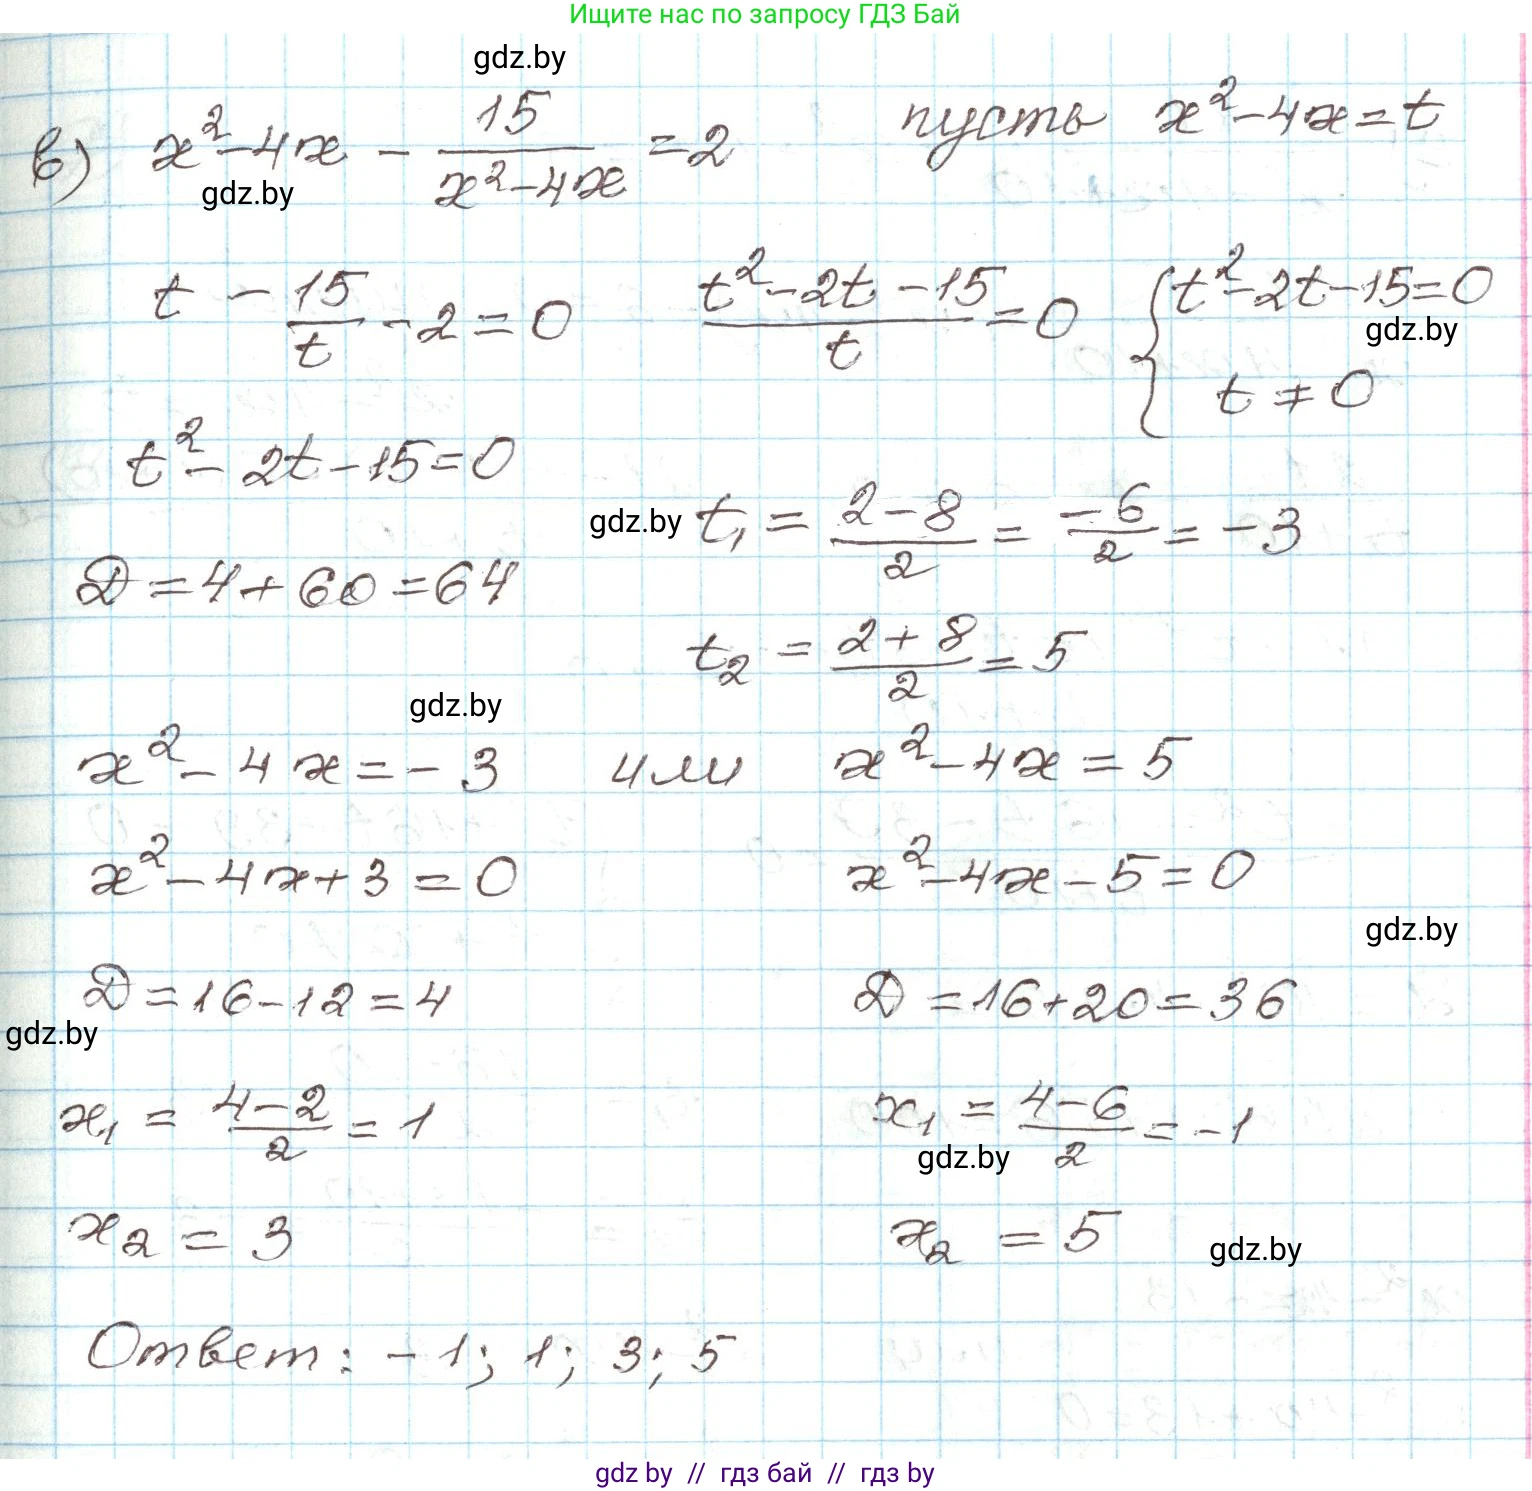 Ищите нас по запросу ГДЗ Бай
gdz.by
в) x² - 4x - 15/(x² - 4x) = 2 пусть x² - 4x = t
gdz.by
t - 15/t - 2 = 0 (t² - 2t - 15)/t = 0 { t² - 2t - 15 = 0
gdz.by
t ≠ 0
t² - 2t - 15 = 0
gdz.by t₁ = (2 - 8)/2 = -6/2 = -3
D = 4 + 60 = 64
t₂ = (2 + 8)/2 = 5
gdz.by
x² - 4x = -3 или x² - 4x = 5
x² - 4x + 3 = 0 x² - 4x - 5 = 0
gdz.by
D = 16 - 12 = 4 D = 16 + 20 = 36
gdz.by
x₁ = (4 - 2)/2 = 1 x₁ = (4 - 6)/2 = -1
gdz.by
x₂ = 3 x₂ = 5
gdz.by
Ответ: -1; 1; 3; 5
gdz by // гдз бай // гдз by